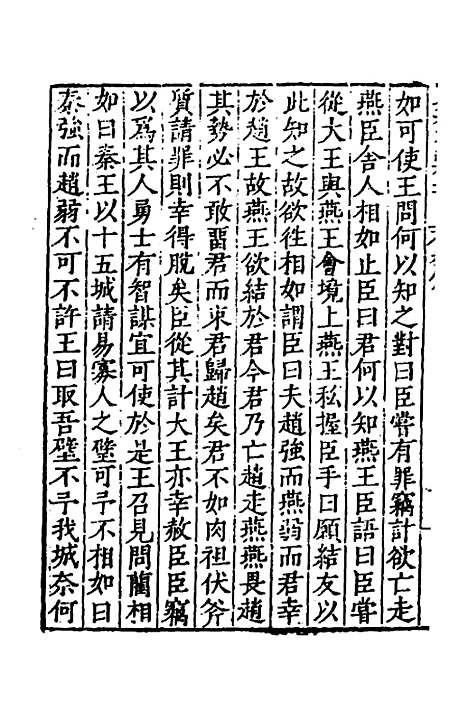 如可使王問何以知之對曰臣嘗有罪竊計欲亡走
燕臣舍人相如止臣曰君何以知燕王臣語曰臣甞
從大王與燕王會境上燕王私握臣手曰願結友以
此知之故欲徃相如謂臣曰夫趙強而燕弱而君幸
於趙王故燕王欲結於君今君乃亡趙走燕燕畏趙
其勢必不敢畱君而束君歸趙矣君不如肉袒伏斧
質請罪則幸得脫矣臣從其計大王亦幸赦臣臣竊
以爲其人勇士有智謀宜可使於是王召見問藺相
如曰秦王以十五城請易寡人之璧可予不相如曰
秦強而趙弱不可不許王曰取吾璧不予我城奈何